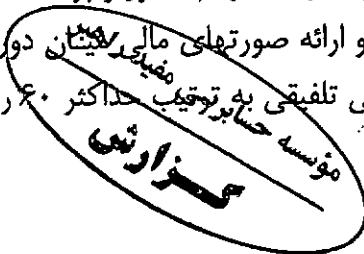 و ارائه صورتهای مالی میان دور
ی تلفیقی به ترتیب حداکثر ۶۰ ر
مؤسسه حسابرسی مفید راهبر
گزارش